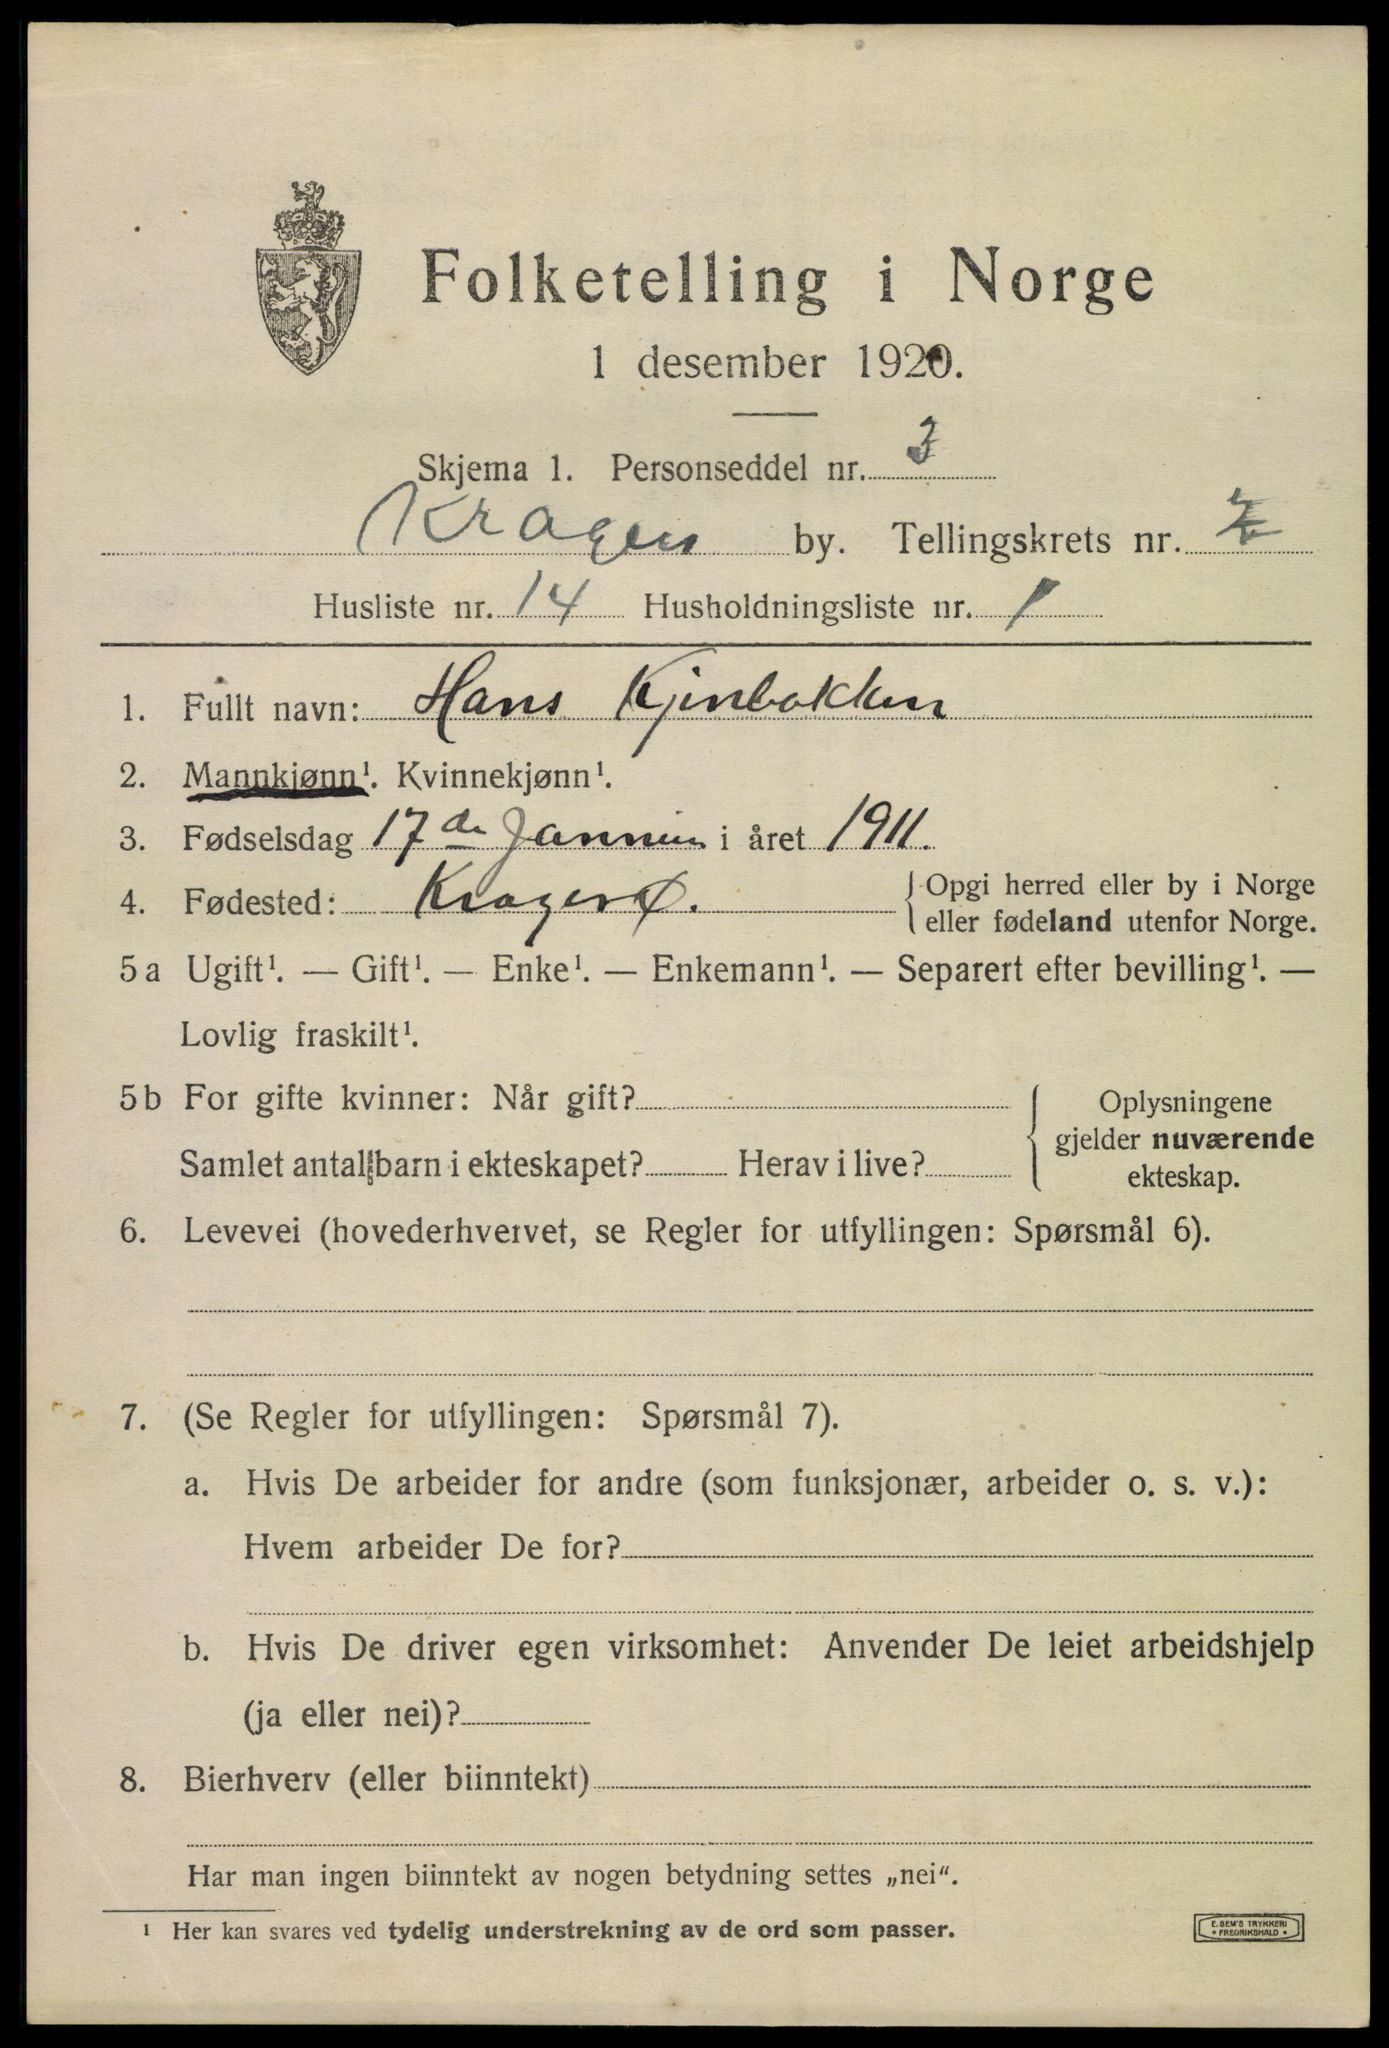 Folketelling i Norge
1 desember 1920.
Skjema 1. Personseddel nr. 3
Kragerø by. Tellingskrets nr.
Husliste nr. 14 Husholdningsliste nr. 1
1. Fullt navn: Hans Kjinbakken
2. Mannkjønn¹. Kvinnekjønn¹.
3. Fødselsdag 17de Januar i året 1911.
4. Fødested: Kragerø. { Opgi herred eller by i Norge
eller fødeland utenfor Norge.
5 a Ugift¹. — Gift¹. — Enke¹. — Enkemann¹. — Separert efter bevilling¹. —
Lovlig fraskilt¹.
5 b For gifte kvinner: Når gift?
Samlet antal barn i ekteskapet? Herav i live?
Oplysningene
gjelder nuværende
ekteskap.
6. Levevei (hovederhvervet, se Regler for utfyllingen: Spørsmål 6).
7. (Se Regler for utfyllingen: Spørsmål 7).
a. Hvis De arbeider for andre (som funksjonær, arbeider o. s. v.):
Hvem arbeider De for?
b. Hvis De driver egen virksomhet: Anvender De leiet arbeidshjelp
(ja eller nei)?
8. Bierhverv (eller biinntekt)
Har man ingen biinntekt av nogen betydning settes „nei“.
¹ Her kan svares ved tydelig understrekning av de ord som passer.
E. SEM'S TRYKKERI
* FREDRIKSHALD *